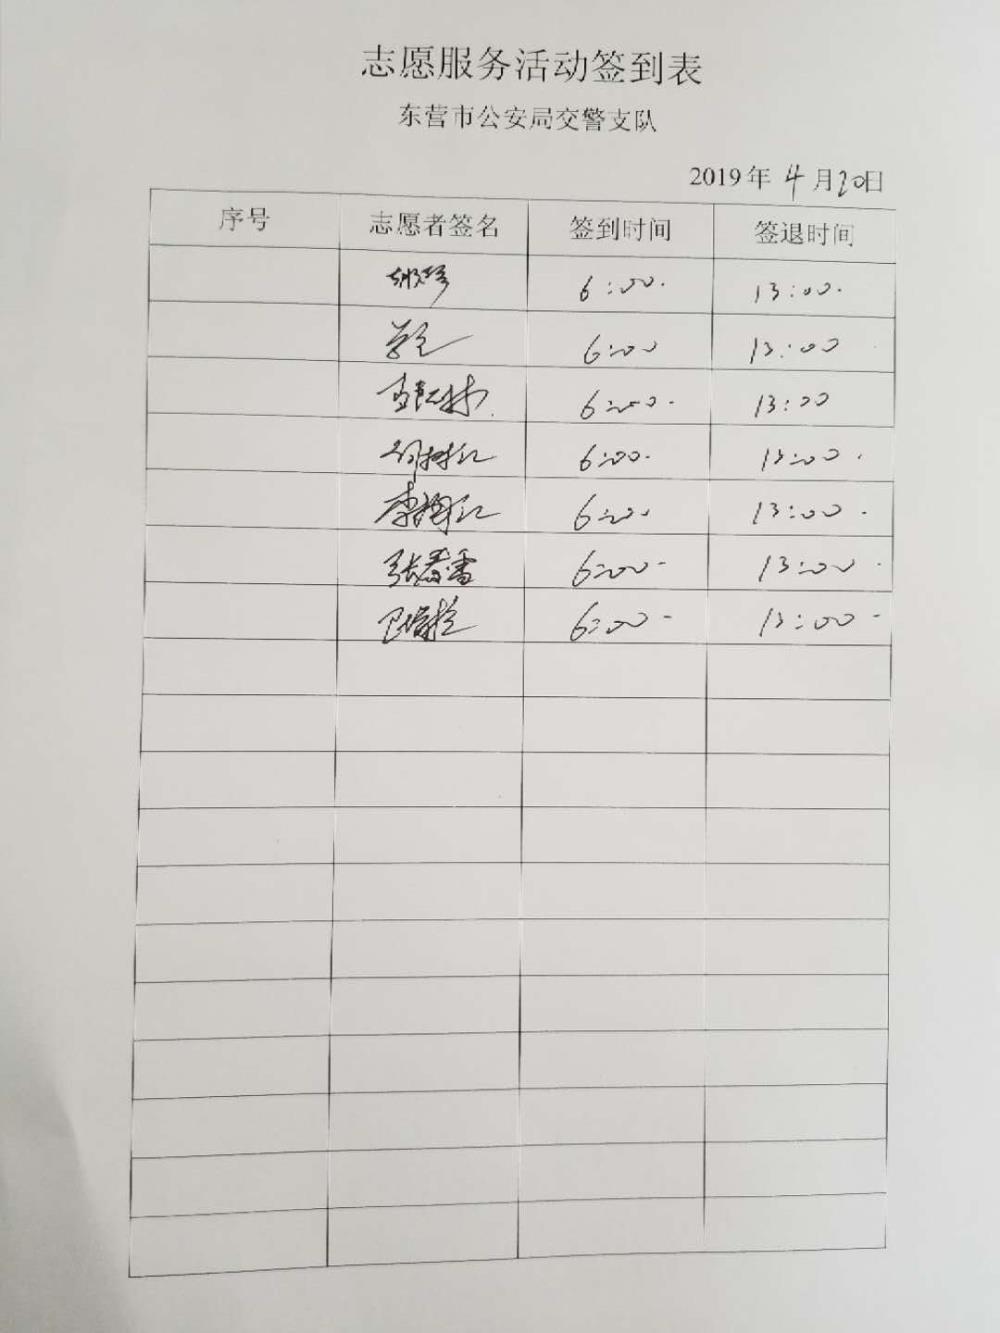 志愿服务活动签到表
东营市公安局交警支队
2019年 4月20日
序号 志愿者签名 签到时间 签退时间
6:00. 13:00.
6:00 13:00
6:00. 13:00
6:00. 13:00.
李 江 6:00. 13:00.
张春雷 6:00- 13:00.
6:00- 13:00-